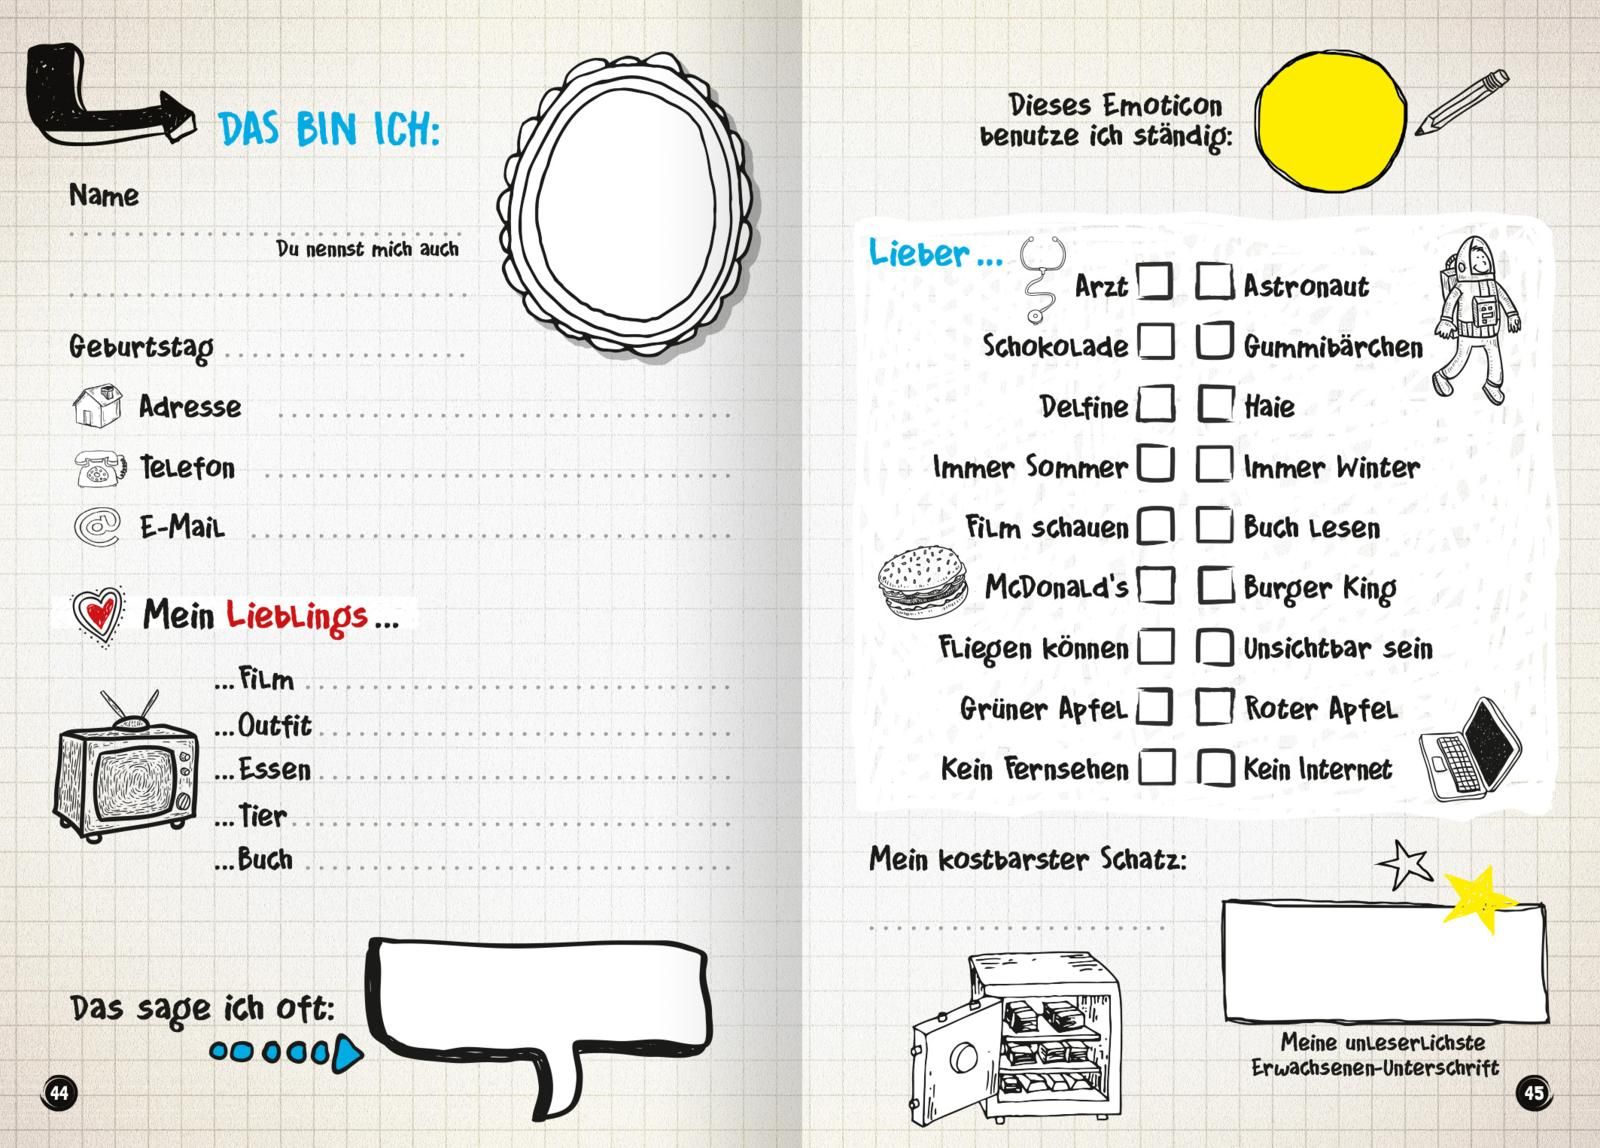 DAS BIN ICH:
Name
Du nennst mich auch
Geburtstag
Adresse
Telefon
E-Mail
Mein Lieblings...
...Film
...Outfit
...Essen
...Tier
...Buch
Das sage ich oft:
44
Dieses Emoticon
benutze ich ständig:
Lieber...
Arzt Astronaut
Schokolade Gummibärchen
Delfine Haie
Immer Sommer Immer Winter
Film schauen Buch lesen
McDonald's Burger King
Fliegen können Unsichtbar sein
Grüner Apfel Roter Apfel
Kein Fernsehen Kein Internet
Mein kostbarster Schatz:
Meine unleserlichste
Erwachsenen-Unterschrift
45